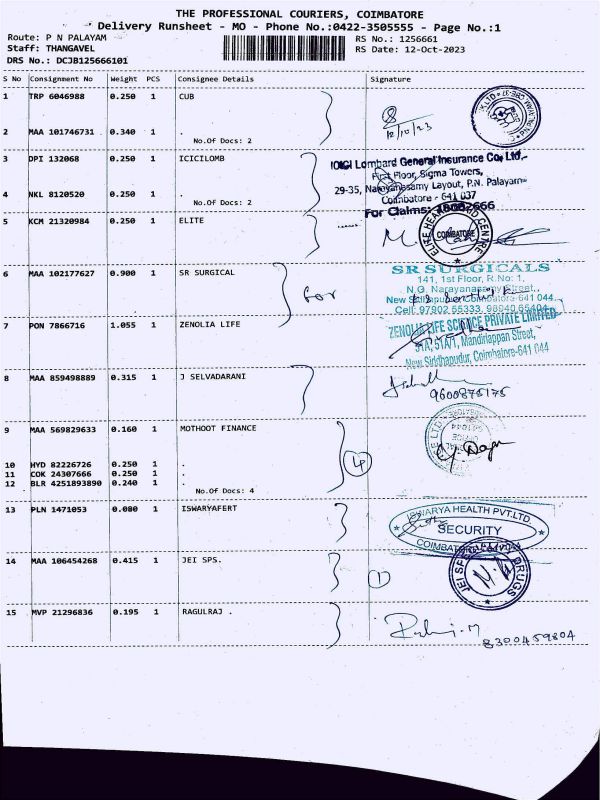 THE PROFESSIONAL COURIERS, COIMBATORE
Delivery Runsheet - MO - Phone No.:0422-3505555 - Page No.:1
Route: P N PALAYAM
RS No.: 1256661
Staff: THANGAVEL
RS Date: 12-Oct-2023
DRS No.: DCJB125666101
S No Consignment No Weight PCS Consignee Details Signature
1 TRP 6046988 0.250 1 CUB
12/10/23
2 MAA 101746731 0.340 1 .
No.Of Docs: 2
3 DPI 132068 0.250 1 ICICILOMB
ICICI Lombard General Insurance Co. Ltd.,
First Floor, Sigma Towers,
29-35, Narayanasamy Layout, P.N. Palayam
4 NKL 8120520 0.250 1 .
Coimbatore - 641 037
No.Of Docs: 2
For Claims:
5 KCM 21320984 0.250 1 ELITE
COIMBATORE
6 MAA 102177627 0.900 1 SR SURGICAL
for
SR SURGICALS
141, 1st Floor, R.No: 1,
N.G. Narayanasamy Street,
New Siddhapudur, Coimbatore-641 044.
Cell: 97902 55333, 98040 65404
7 PON 7866716 1.055 1 ZENOLIA LIFE
ZENOLIA LIFE SCIENCE PRIVATE LIMITED
51A, 51A/1, Mandiriappan Street,
New Siddhapudur, Coimbatore-641 044
8 MAA 859498889 0.315 1 J SELVADARANI
9600875175
9 MAA 569829633 0.160 1 MOTHOOT FINANCE
10 HYD 82226726 0.250 1 .
4
11 COK 24307666 0.250 1 .
12 BLR 4251893890 0.240 1 .
No.Of Docs: 4
13 PLN 1471053 0.080 1 ISWARYAFERT
ISWARYA HEALTH PVT.LTD.
SECURITY
14 MAA 106454268 0.415 1 JEI SPS.
1
DRUGS
15 MVP 21296836 0.195 1 RAGULRAJ .
8300459804